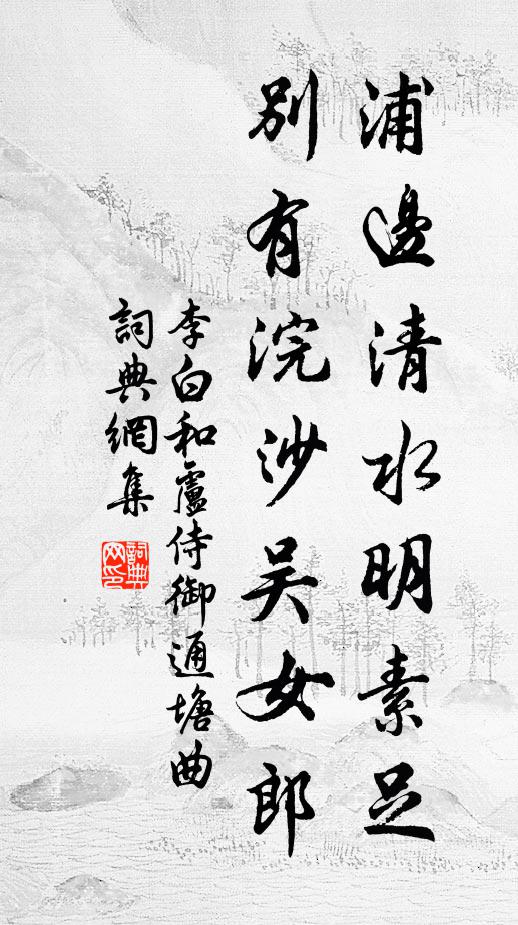 浦邊清水明素足
別有浣沙吴女郎
李白和盧侍御通塘曲
詞典網集
詞典網印